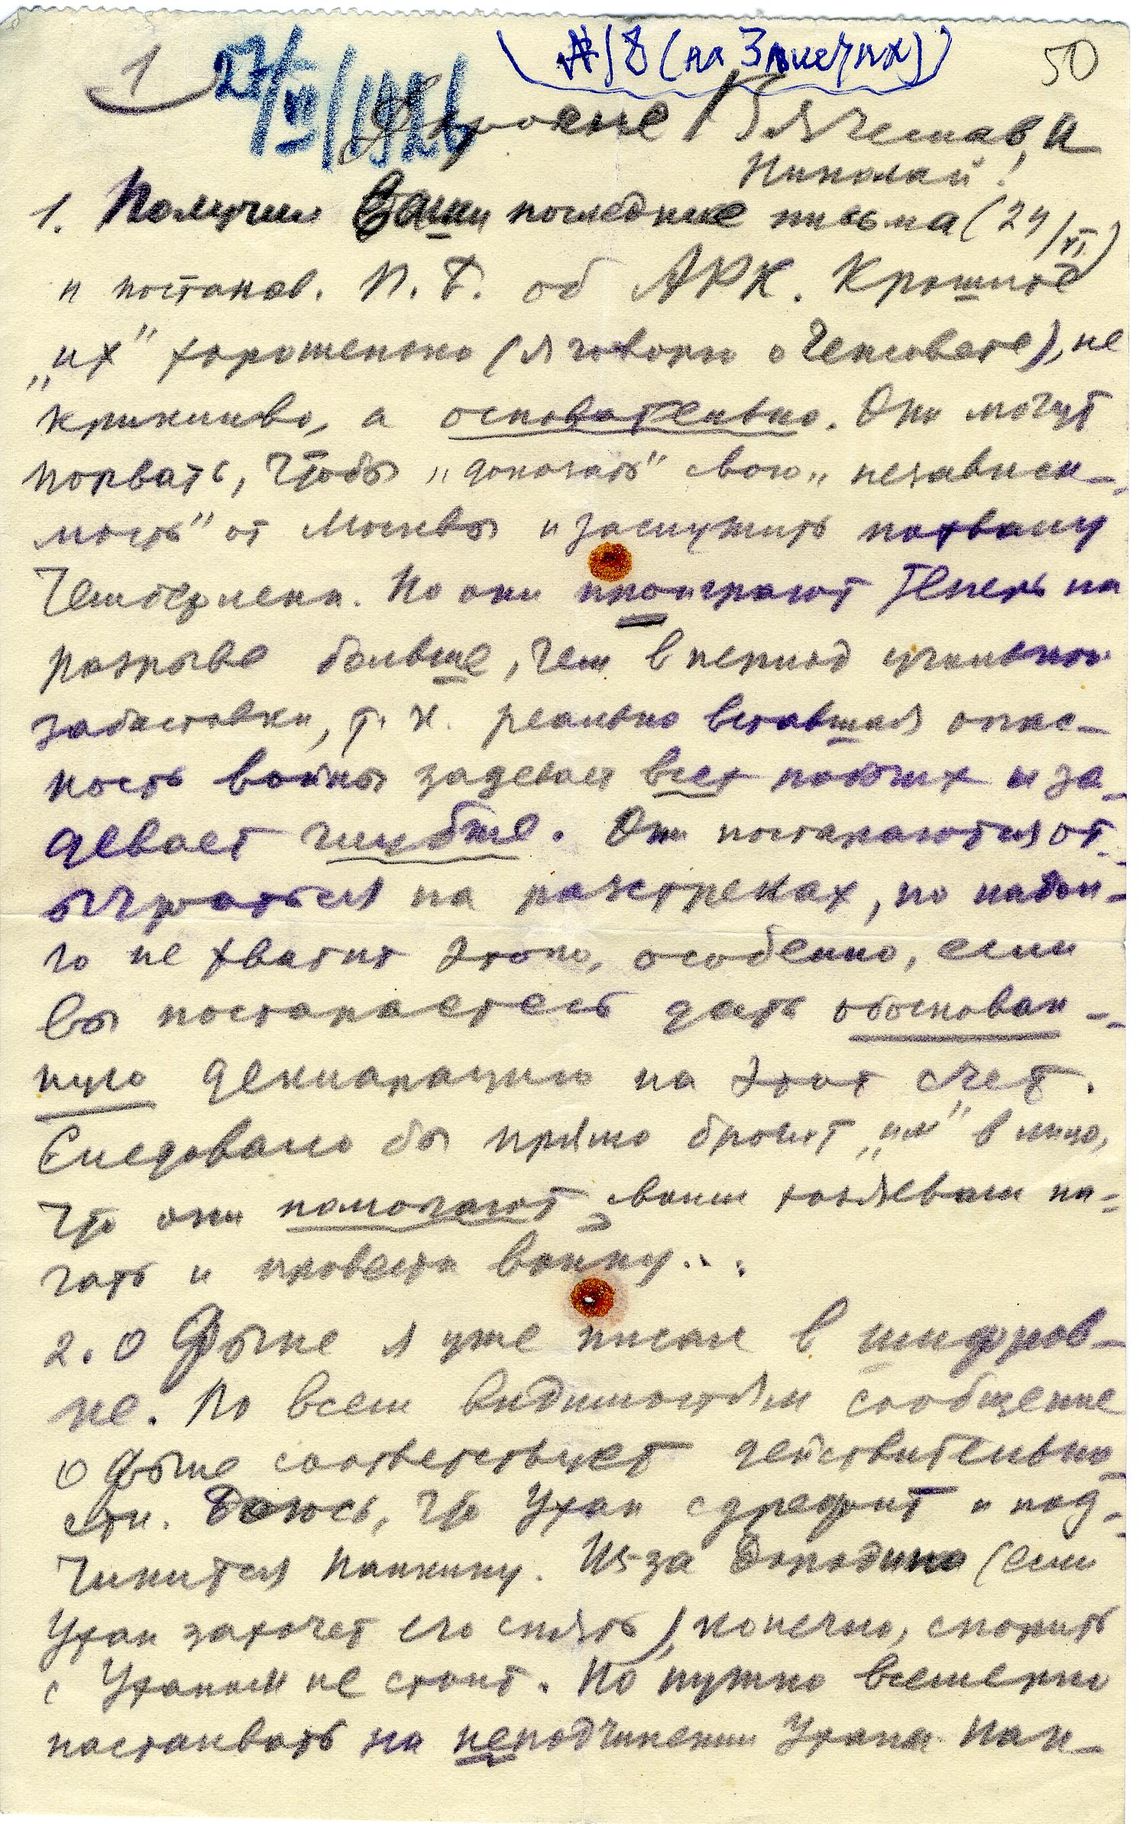 1
27/VI/1927
№18 (на 3 листках)
50
Дорогие Вячеслав и
Николай!
1. Получил Ваши последние письма (24/VI)
и постанов. П.Б. об АРК. Кройте
„их" хорошенько (я говорю о Генсовете), не
крикливо, а основательно. Они могут
порвать, чтобы „доказать" свою „независи-
мость" от Москвы и заслужить похвалу
Чемберлена. Но они проиграют теперь на
разрыве больше, чем в период угольной
забастовки, т.к. реально вставшая опас-
ность войны задевает всех рабочих и за-
девает глубже. Они постараются от-
ыграться на расстрелах, но надол-
го не хватит этого, особенно, если
Вы постараетесь дать обоснован-
ную декларацию на этот счет.
Следовало бы прямо бросить „им" в лицо,
что они помогают своим хозяевам на-
чать и провести войну...
2. О Фыне я уже писал в шифров-
ке. По всем видимостям сообщение
о Фыне соответствует действительно-
сти. Боюсь, что Ухан сдрефит и под-
чинится Нанкину. Из-за Бородина (если
Ухан захочет его снять), конечно, спорить
с Уханом не стоит. Но нужно всемерно
настаивать на неподчинении Ухана Нан-